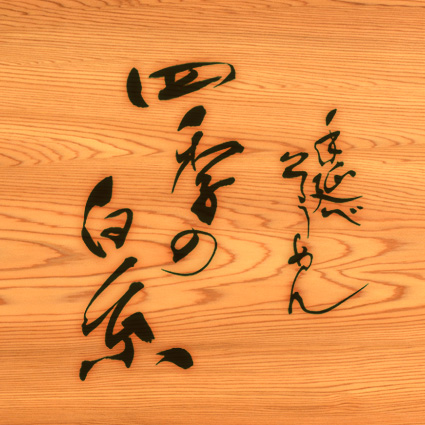 手延べ
そうめん
四季の
白糸